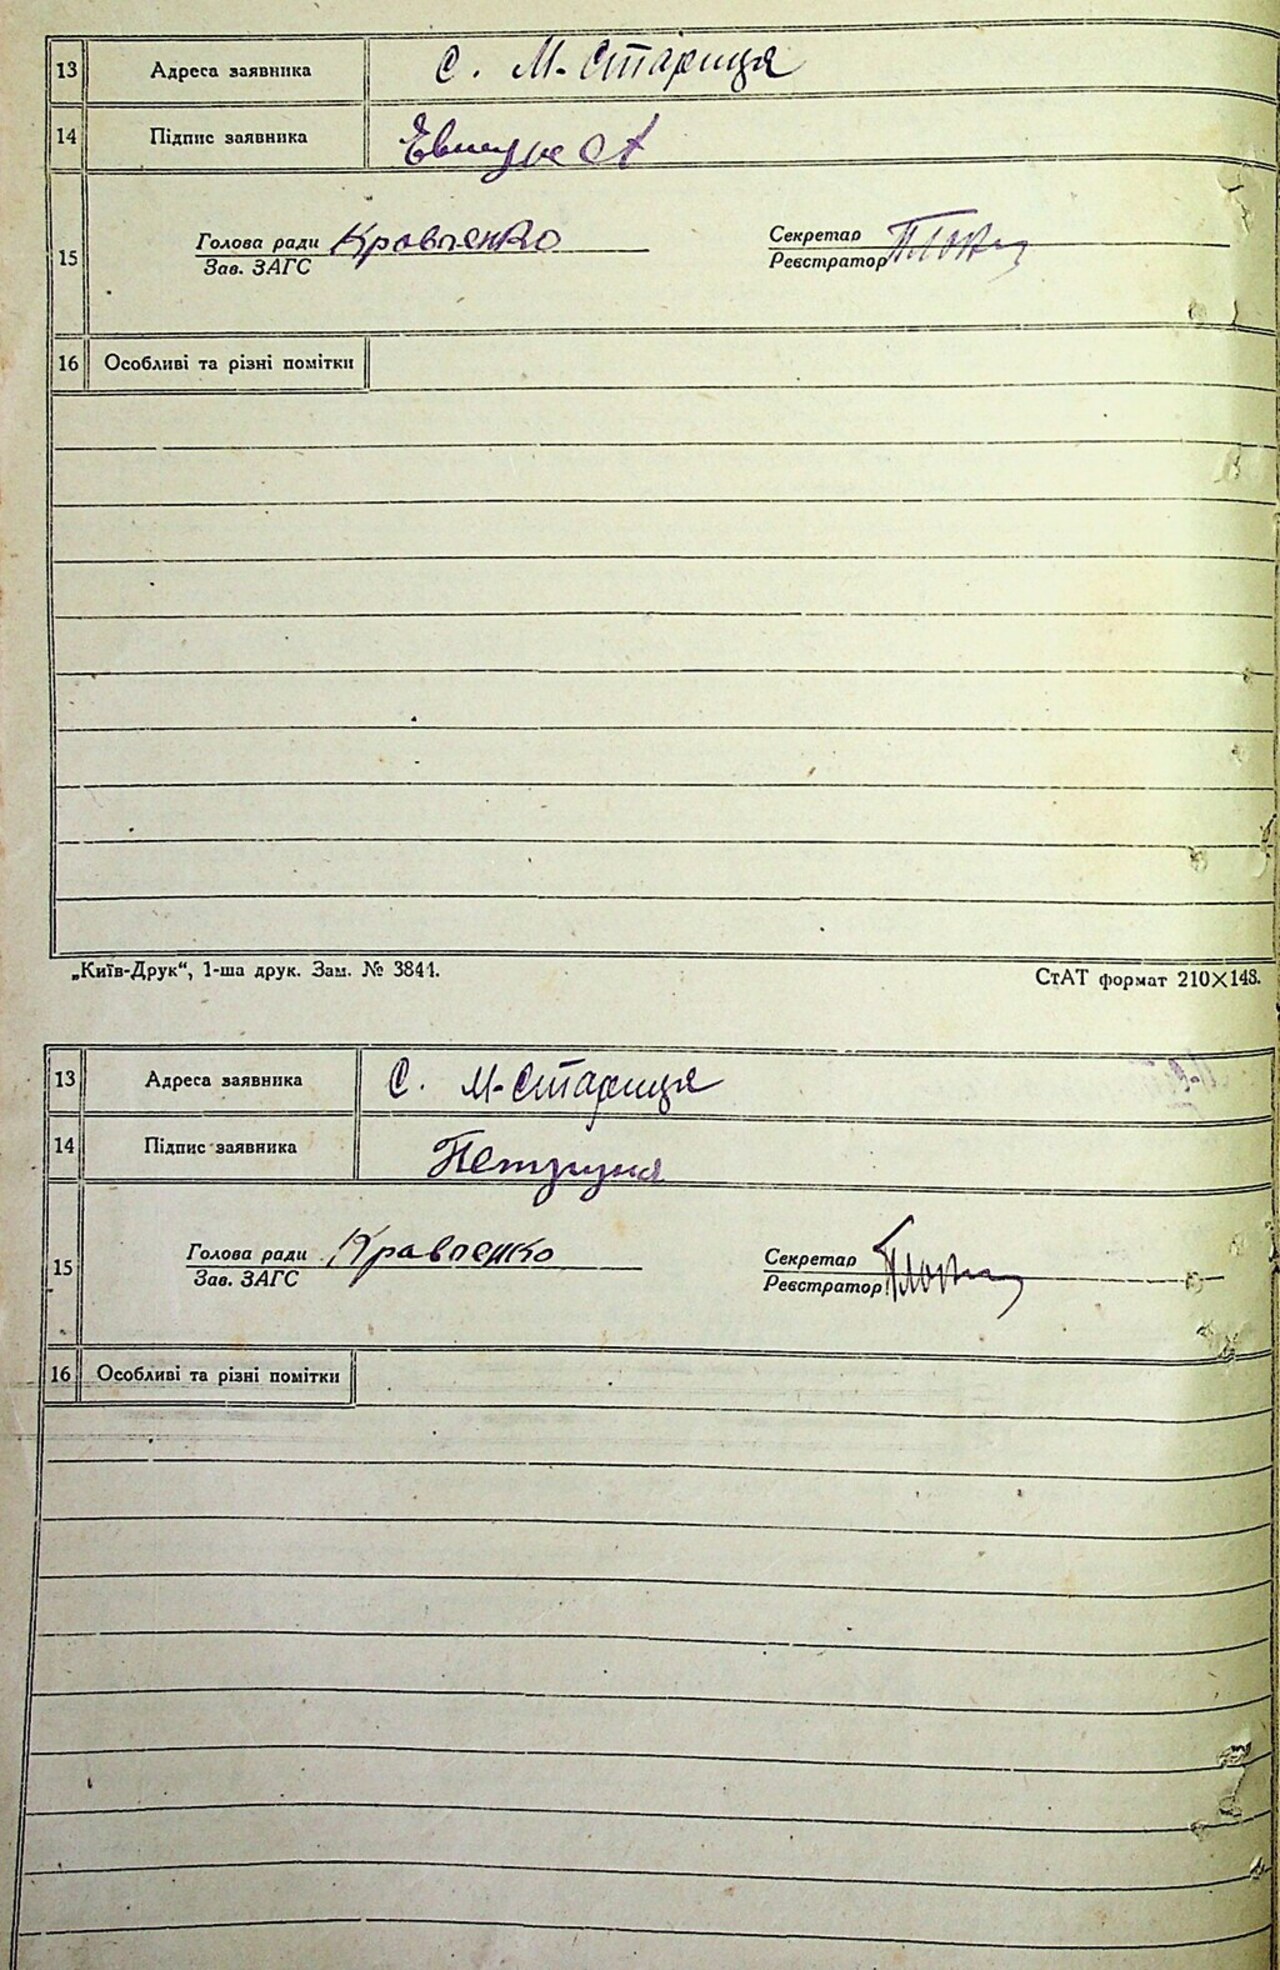 13 Адреса заявника с. М-Стариця
14 Підпис заявника
15 Голова ради Кравченко Секретар
Зав. ЗАГС Реєстратор
16 Особливі та різні помітки
„Київ-Друк“, 1-ша друк. Зам. № 3841. СтАТ формат 210×148.
13 Адреса заявника с. М-Стариця
14 Підпис заявника
15 Голова ради Кравченко Секретар
Зав. ЗАГС Реєстратор
16 Особливі та різні помітки